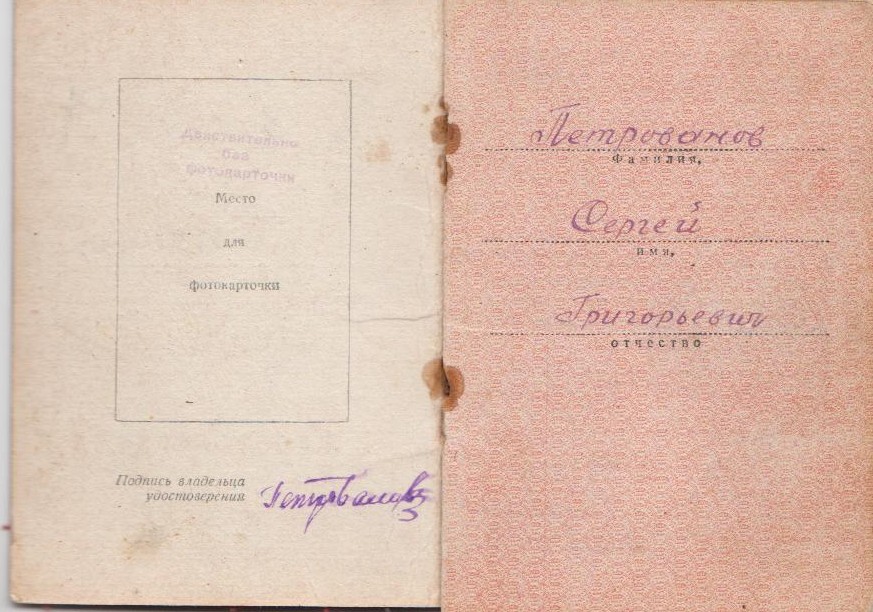 Действительно
без
фотокарточки
Место
для
фотокарточки
Подпись владельца
удостоверения
Петрованов
Петрованов
Фамилия,
Сергей
имя,
Григорьевич
отчество